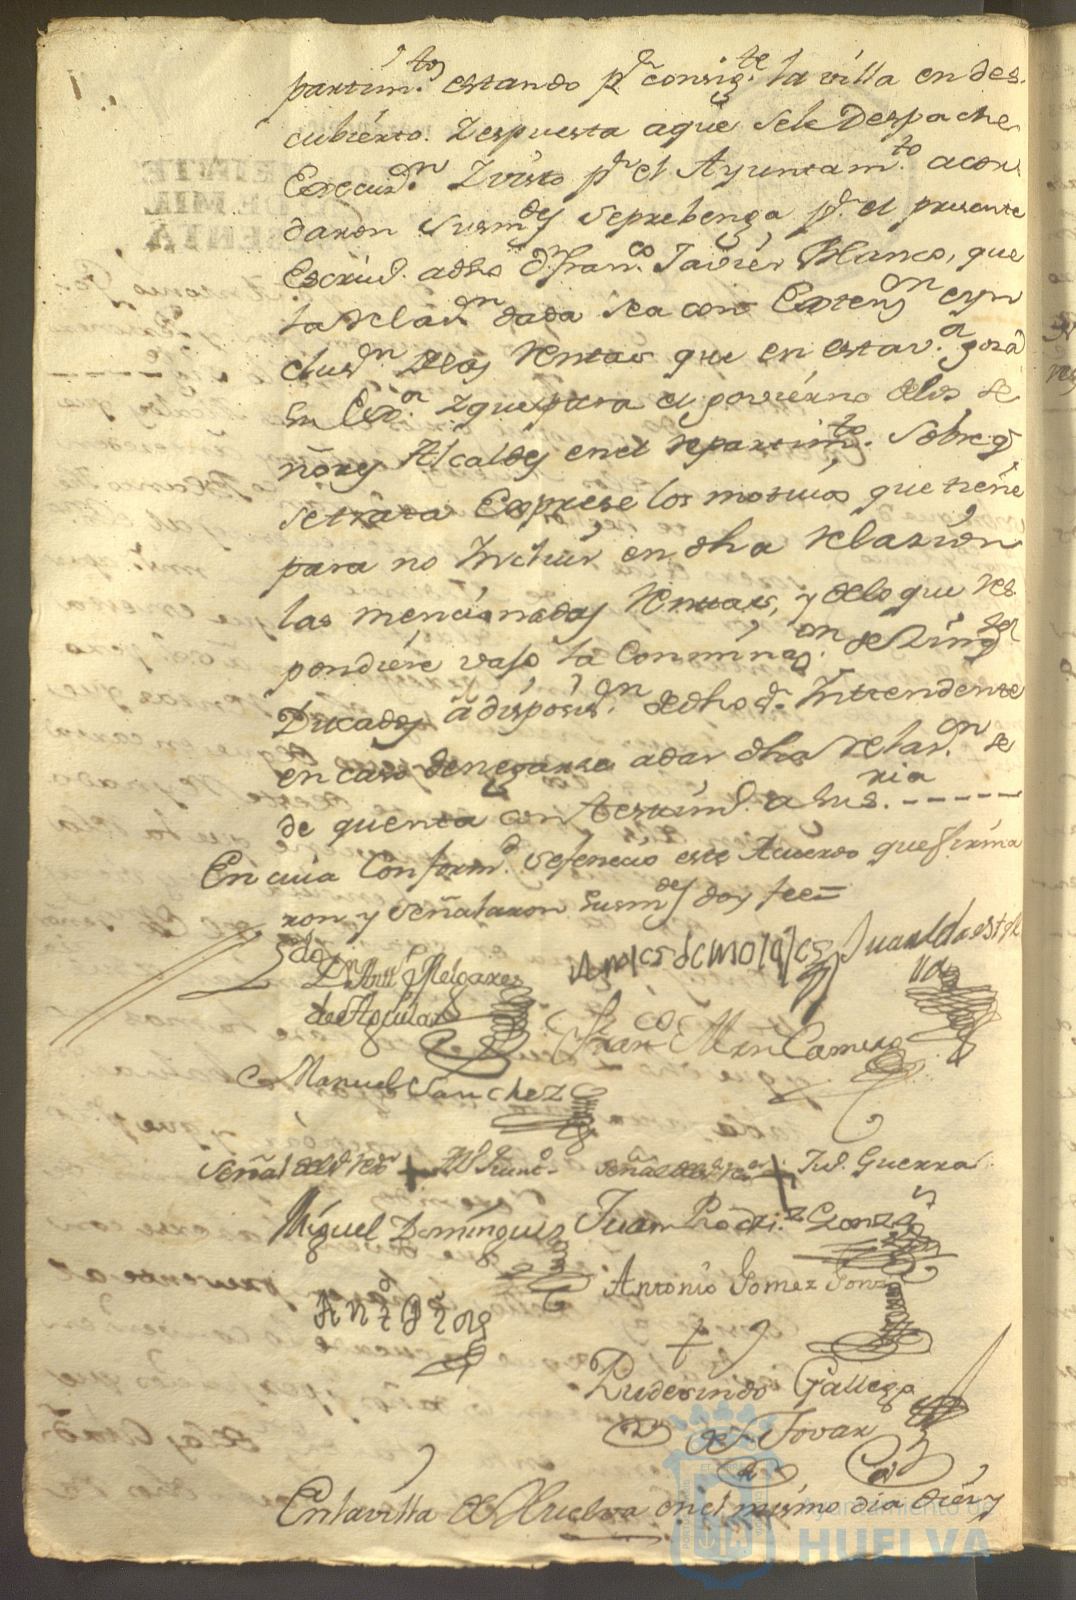 partim.to estando pr consigte la villa en des-
cubierto. Y espuesta aque sele Despache
Execuon. Y visto pr el Ayuntamto. acor
daron susmdes seprebenga pr el presente
Escriuo. adho Dn Franco. Javier Blanco, que
la relaon dada sea con Extenon eyn
cluson delas Rentas que en esta va. goza
su Exa. yquepara el govierno delos se
ñores Alcaldes enel repartimto. sobreq
setrata Exprese los motivos que tiene
para no Incluir en dha relazion
las mencionadas Rentas, y delo que res
pondiere vajo la Conminaon. de
Ducados a disposion. de dho sr. Intendente
en caso denegarse adar dha relaon. se
de quenta con testimo. a su sria. ----
En cuia Conformd. sefenecio este Acuerdo quefirma
ron y señalaron susmdes doy fee=
Ldo
Dn Melgarejo
de Aguilar
Juan
Franco Mrn Camero
Manuel Sanchez
Señal del sr Rexor + señal del sr Rexor + Guerra
Miguel Dominguez Juan Rodriz Gonzs
Antonio Gomez Gonz
Ruderindo Gallego
de Tovar
Enlavilla de Huelva enel mismo dia diez y
Ayuntamiento de
HUELVA